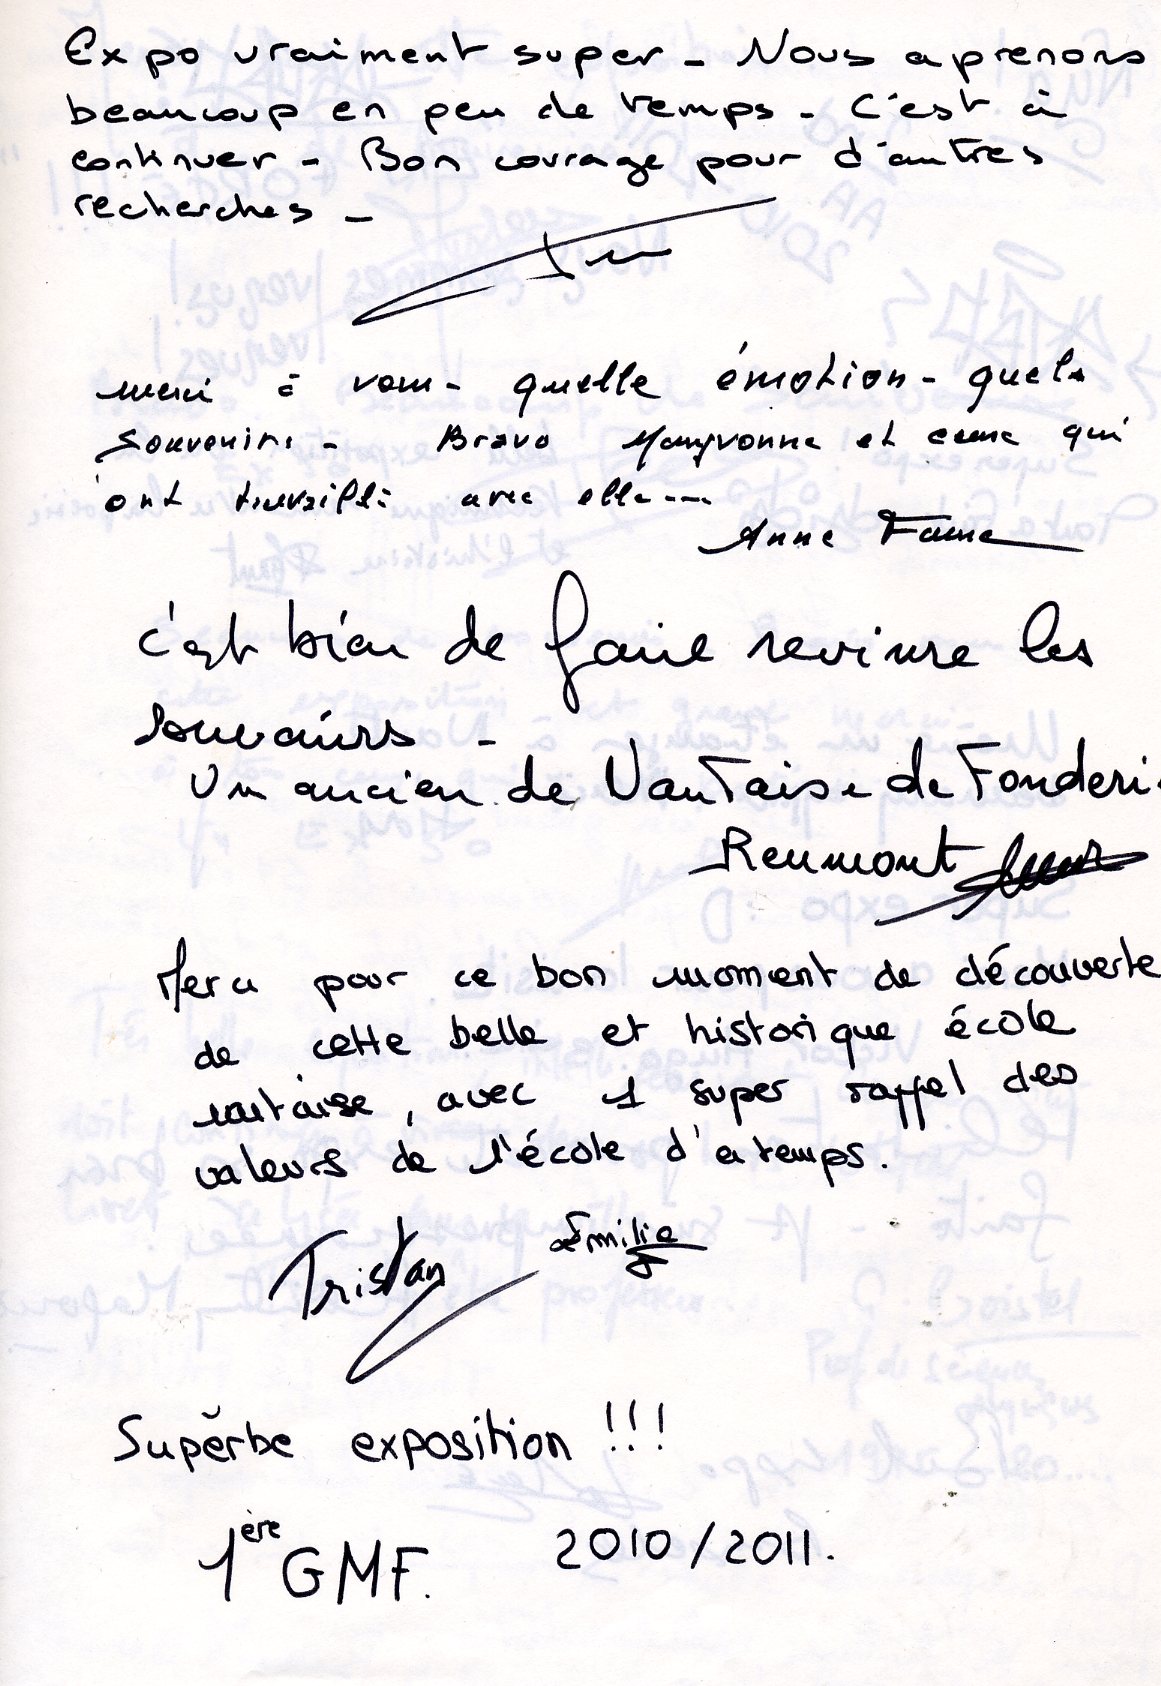 Expo vraiment super - Nous aprenons
beaucoup en peu de temps - C'est à
continuer - Bon courage pour d'autres
recherches -
merci à vous - quelle émotion - quels
souvenirs - Bravo et ceux qui
ont travaillé avec elle ---
Anne
c'est bien de faire revivre les
souvenirs -
Un ancien de Nantaise de Fonderi
Reumont
Merci pour ce bon moment de découverte
de cette belle et historique école
nantaise, avec 1 super rappel des
valeurs de l'école d'atemps.
Tristan Emilie
Superbe exposition !!!
1ère GMF. 2010/2011.